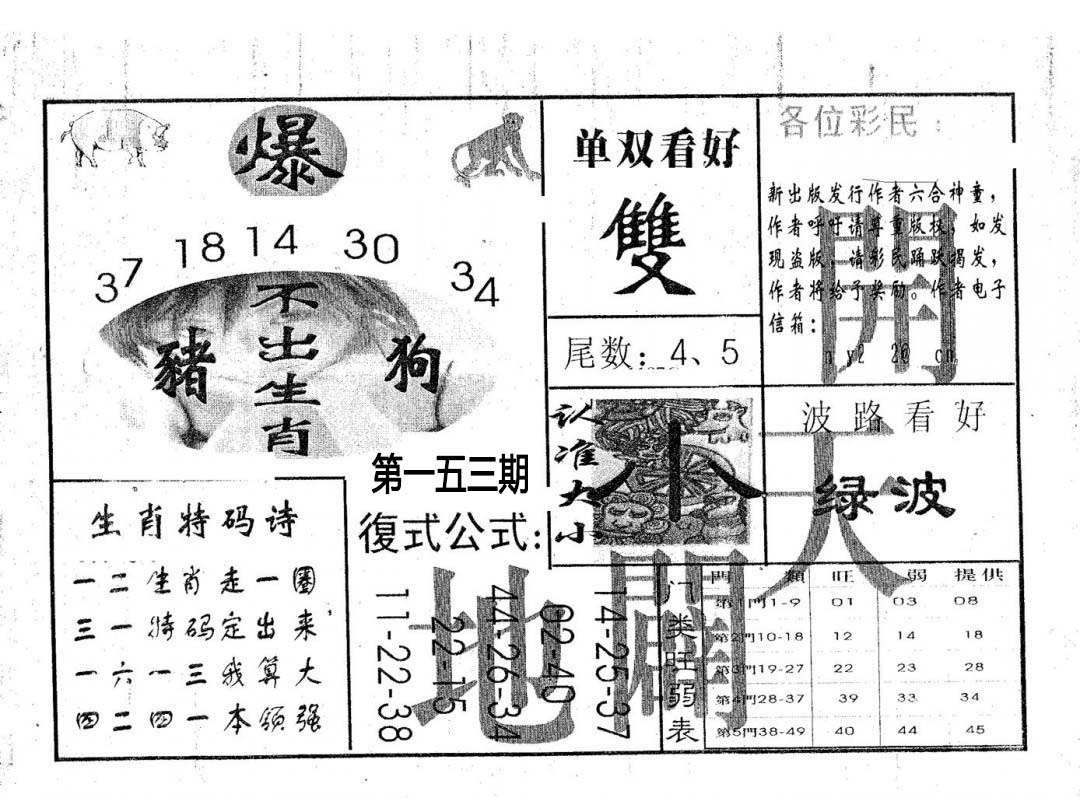 爆
37 18 14 30 34
豬
不出生肖
狗
单双看好
雙
尾数：4、5
各位彩民：
新出版发行作者六合神童，
作者呼吁请尊重版权；如发
现盗版，请彩民踊跃揭发，
作者将给予奖励。作者电子
信箱：
認准大小
小
波路看好
绿波
開
天
闢
地
第一五三期
復式公式：
11-22-38
22-15
44-26-34
02-40
14-25-37
生肖特码诗
一二生肖走一圈
三一特码定出来，
一六一三我算大
四二四一本领强
门类旺弱表
門類 旺 弱 提供
第1門1-9 01 03 08
第2門10-18 12 14 18
第3門19-27 22 23 28
第4門28-37 39 33 34
第5門38-49 40 44 45